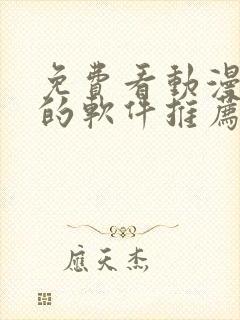 免費看動漫
的軟件推薦
應天杰